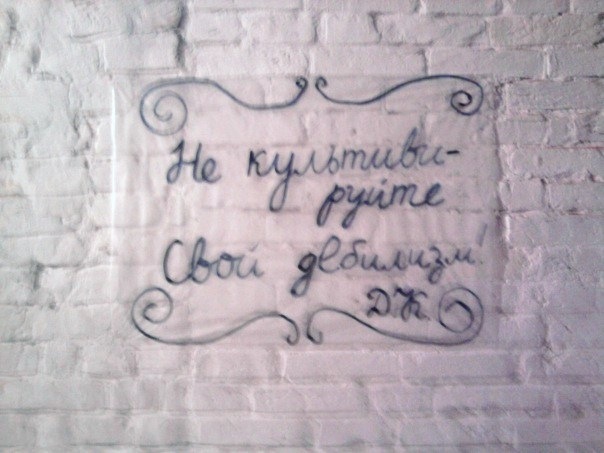 Не культиви-
руйте
Свой дебилизм!
Д.К.